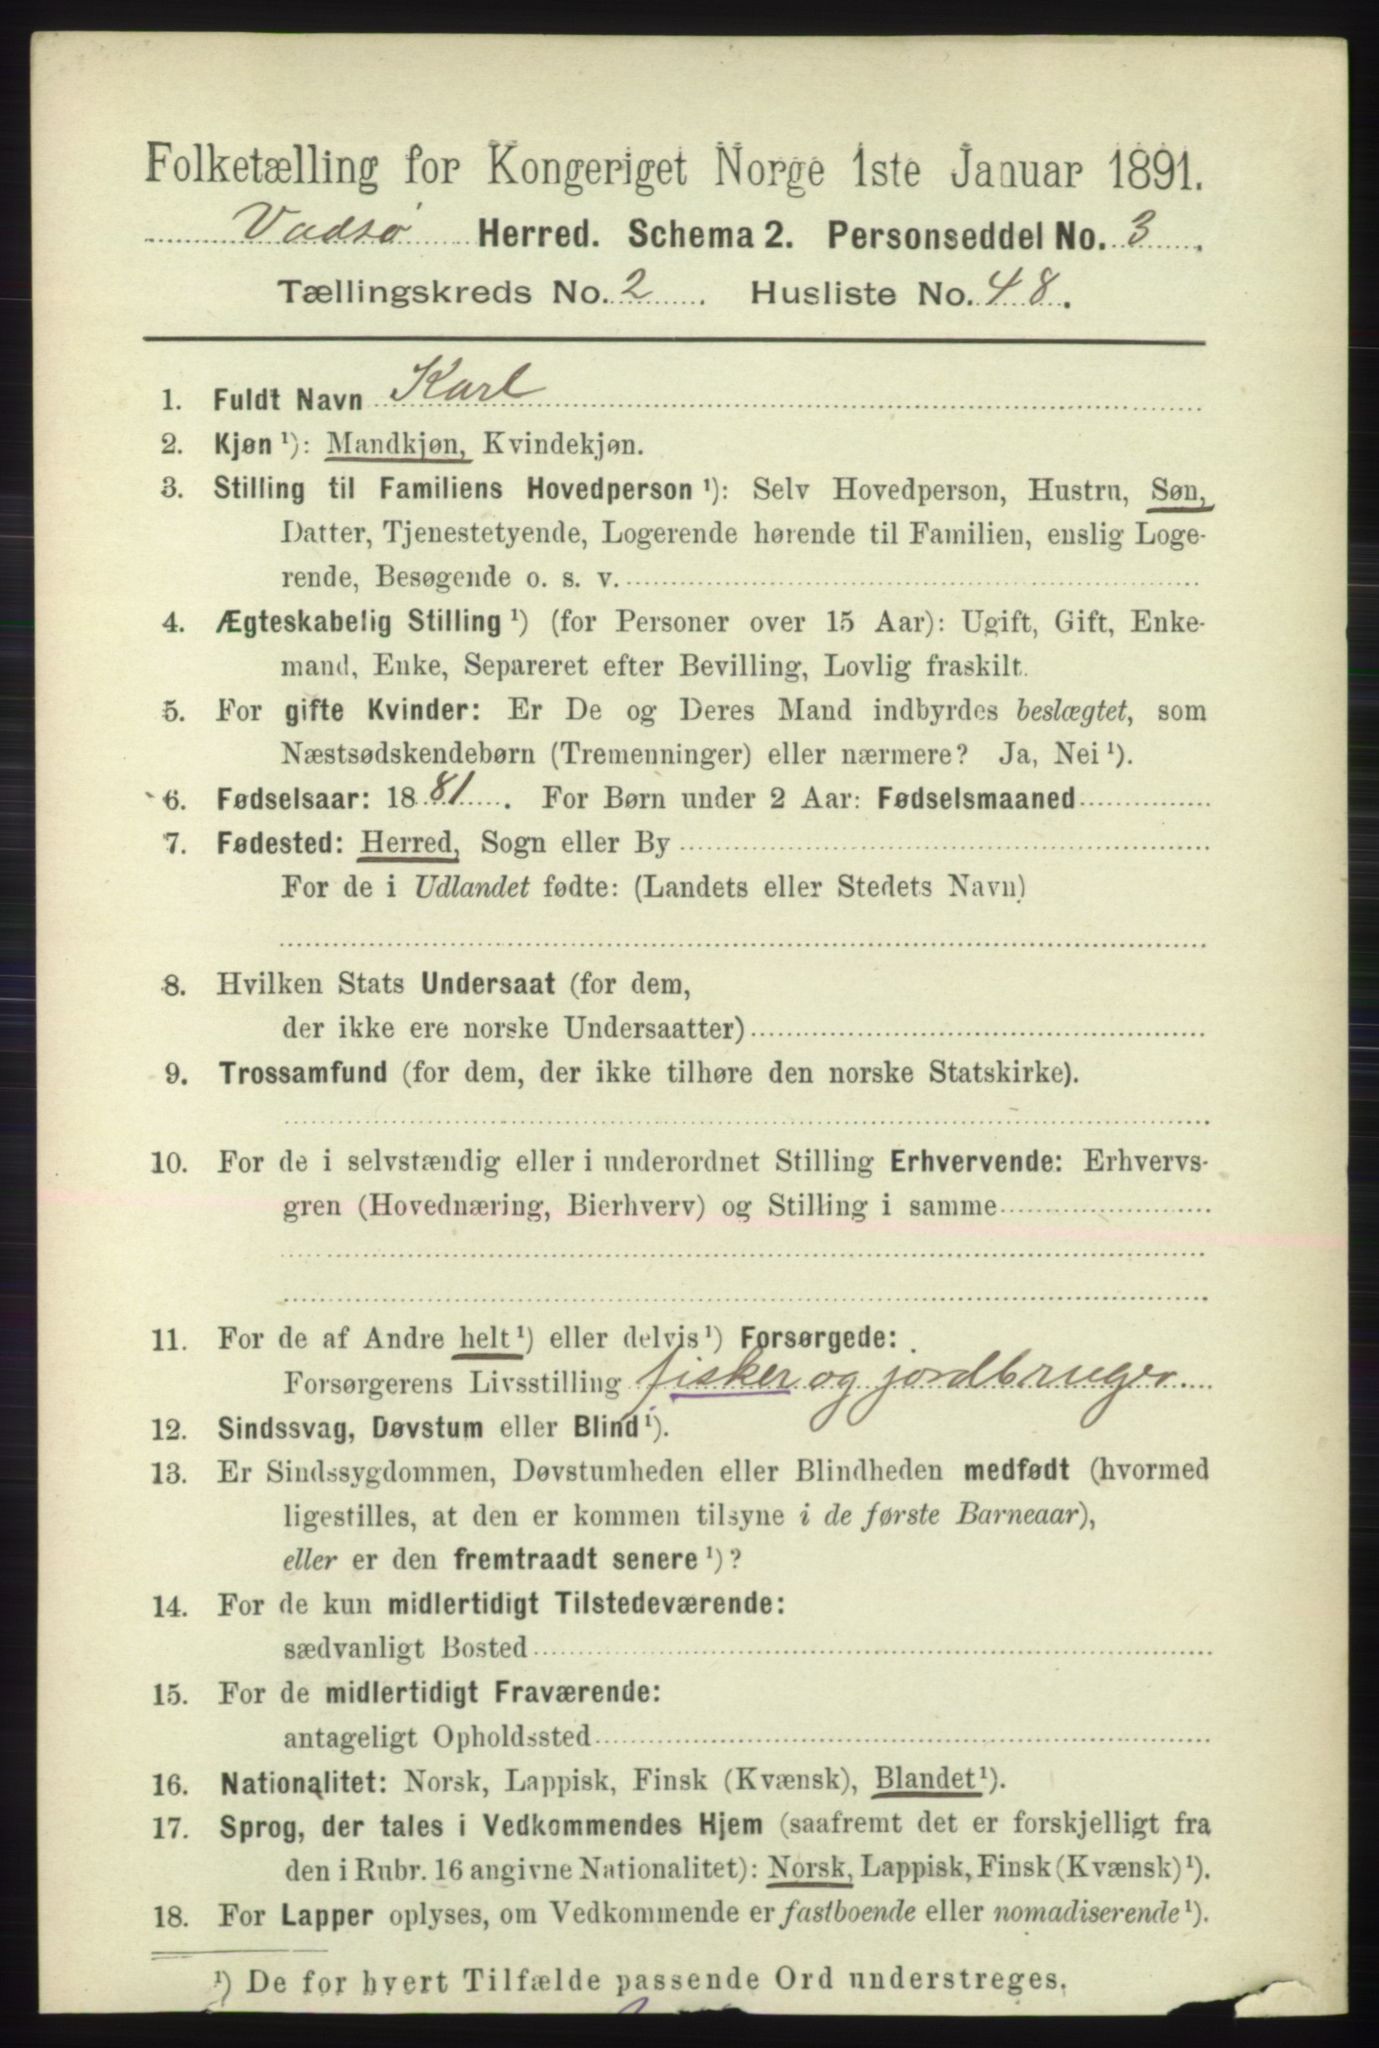 Folketælling for Kongeriget Norge 1ste Januar 1891.
Vadsø Herred. Schema 2. Personseddel No. 3.
Tællingskreds No. 2. Husliste No. 48.
1. Fuldt Navn Karl
2. Kjøn ¹): Mandkjøn, Kvindekjøn.
3. Stilling til Familiens Hovedperson ¹): Selv Hovedperson, Hustru, Søn,
Datter, Tjenestetyende, Logerende hørende til Familien, enslig Loge-
rende, Besøgende o. s. v.
4. Ægteskabelig Stilling ¹) (for Personer over 15 Aar): Ugift, Gift, Enke-
mand, Enke, Separeret efter Bevilling, Lovlig fraskilt.
5. For gifte Kvinder: Er De og Deres Mand indbyrdes beslægtet, som
Næstsødskendebørn (Tremenninger) eller nærmere? Ja, Nei ¹).
6. Fødselsaar: 1881. For Børn under 2 Aar: Fødselsmaaned
7. Fødested: Herred, Sogn eller By
For de i Udlandet fødte: (Landets eller Stedets Navn)
8. Hvilken Stats Undersaat (for dem,
der ikke ere norske Undersaatter)
9. Trossamfund (for dem, der ikke tilhøre den norske Statskirke).
10. For de i selvstændig eller i underordnet Stilling Erhvervende: Erhvervs-
gren (Hovednæring, Bierhverv) og Stilling i samme
11. For de af Andre helt ¹) eller delvis ¹) Forsørgede:
Forsørgerens Livsstilling fisker og jordbruger.
12. Sindssvag, Døvstum eller Blind ¹).
13. Er Sindssygdommen, Døvstumheden eller Blindheden medfødt (hvormed
ligestilles, at den er kommen tilsyne i de første Barneaar),
eller er den fremtraadt senere ¹)?
14. For de kun midlertidigt Tilstedeværende:
sædvanligt Bosted
15. For de midlertidigt Fraværende:
antageligt Opholdssted
16. Nationalitet: Norsk, Lappisk, Finsk (Kvænsk), Blandet ¹).
17. Sprog, der tales i Vedkommendes Hjem (saafremt det er forskjelligt fra
den i Rubr. 16 angivne Nationalitet): Norsk, Lappisk, Finsk (Kvænsk) ¹).
18. For Lapper oplyses, om Vedkommende er fastboende eller nomadiserende ¹).
¹) De for hvert Tilfælde passende Ord understreges.